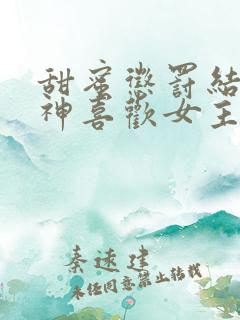 甜蜜懲罰結
神喜歡女主
秦逑建
未经同意禁止转载